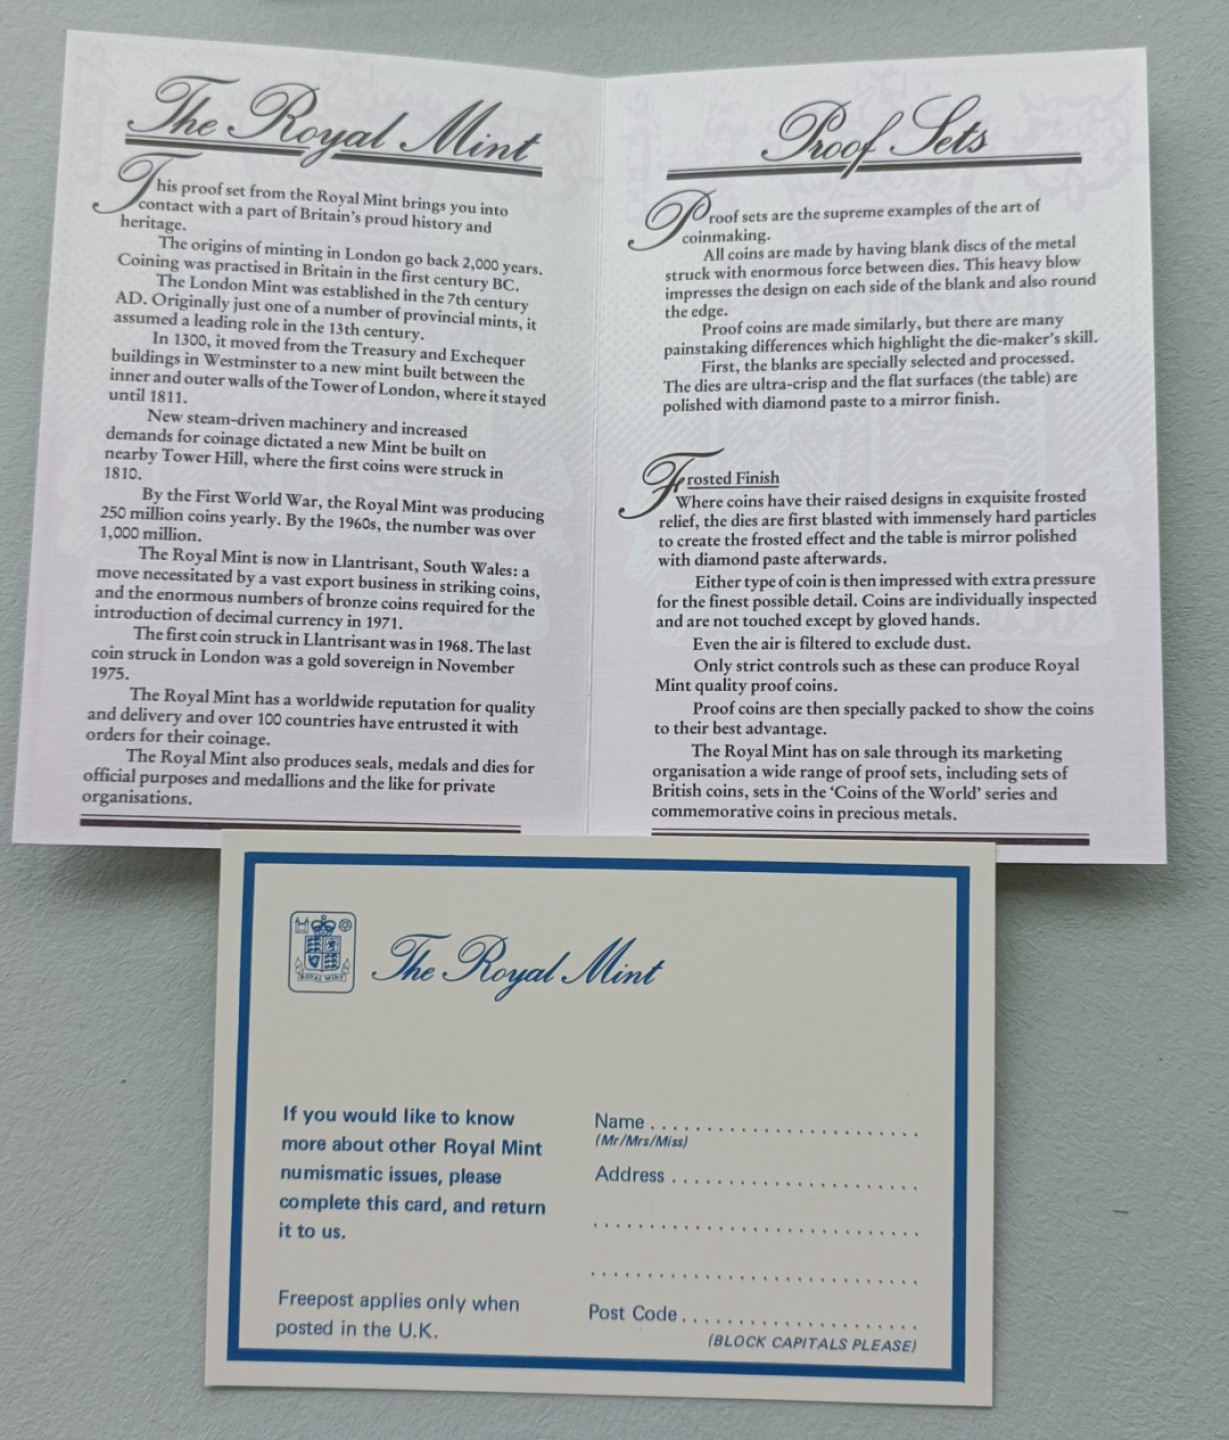 The Royal Mint
This proof set from the Royal Mint brings you into
contact with a part of Britain's proud history and
heritage.
The origins of minting in London go back 2,000 years.
Coining was practised in Britain in the first century BC.
The London Mint was established in the 7th century
AD. Originally just one of a number of provincial mints, it
assumed a leading role in the 13th century.
In 1300, it moved from the Treasury and Exchequer
buildings in Westminster to a new mint built between the
inner and outer walls of the Tower of London, where it stayed
until 1811.
New steam-driven machinery and increased
demands for coinage dictated a new Mint be built on
nearby Tower Hill, where the first coins were struck in
1810.
By the First World War, the Royal Mint was producing
250 million coins yearly. By the 1960s, the number was over
1,000 million.
The Royal Mint is now in Llantrisant, South Wales: a
move necessitated by a vast export business in striking coins,
and the enormous numbers of bronze coins required for the
introduction of decimal currency in 1971.
The first coin struck in Llantrisant was in 1968. The last
coin struck in London was a gold sovereign in November
1975.
The Royal Mint has a worldwide reputation for quality
and delivery and over 100 countries have entrusted it with
orders for their coinage.
The Royal Mint also produces seals, medals and dies for
official purposes and medallions and the like for private
organisations.
Proof Sets
Proof sets are the supreme examples of the art of
coinmaking.
All coins are made by having blank discs of the metal
struck with enormous force between dies. This heavy blow
impresses the design on each side of the blank and also round
the edge.
Proof coins are made similarly, but there are many
painstaking differences which highlight the die-maker's skill.
First, the blanks are specially selected and processed.
The dies are ultra-crisp and the flat surfaces (the table) are
polished with diamond paste to a mirror finish.
Frosted Finish
Where coins have their raised designs in exquisite frosted
relief, the dies are first blasted with immensely hard particles
to create the frosted effect and the table is mirror polished
with diamond paste afterwards.
Either type of coin is then impressed with extra pressure
for the finest possible detail. Coins are individually inspected
and are not touched except by gloved hands.
Even the air is filtered to exclude dust.
Only strict controls such as these can produce Royal
Mint quality proof coins.
Proof coins are then specially packed to show the coins
to their best advantage.
The Royal Mint has on sale through its marketing
organisation a wide range of proof sets, including sets of
British coins, sets in the 'Coins of the World' series and
commemorative coins in precious metals.
ROYAL MINT
The Royal Mint
If you would like to know
more about other Royal Mint
numismatic issues, please
complete this card, and return
it to us.
Freepost applies only when
posted in the U.K.
Name
(Mr/Mrs/Miss)
Address
Post Code
(BLOCK CAPITALS PLEASE)